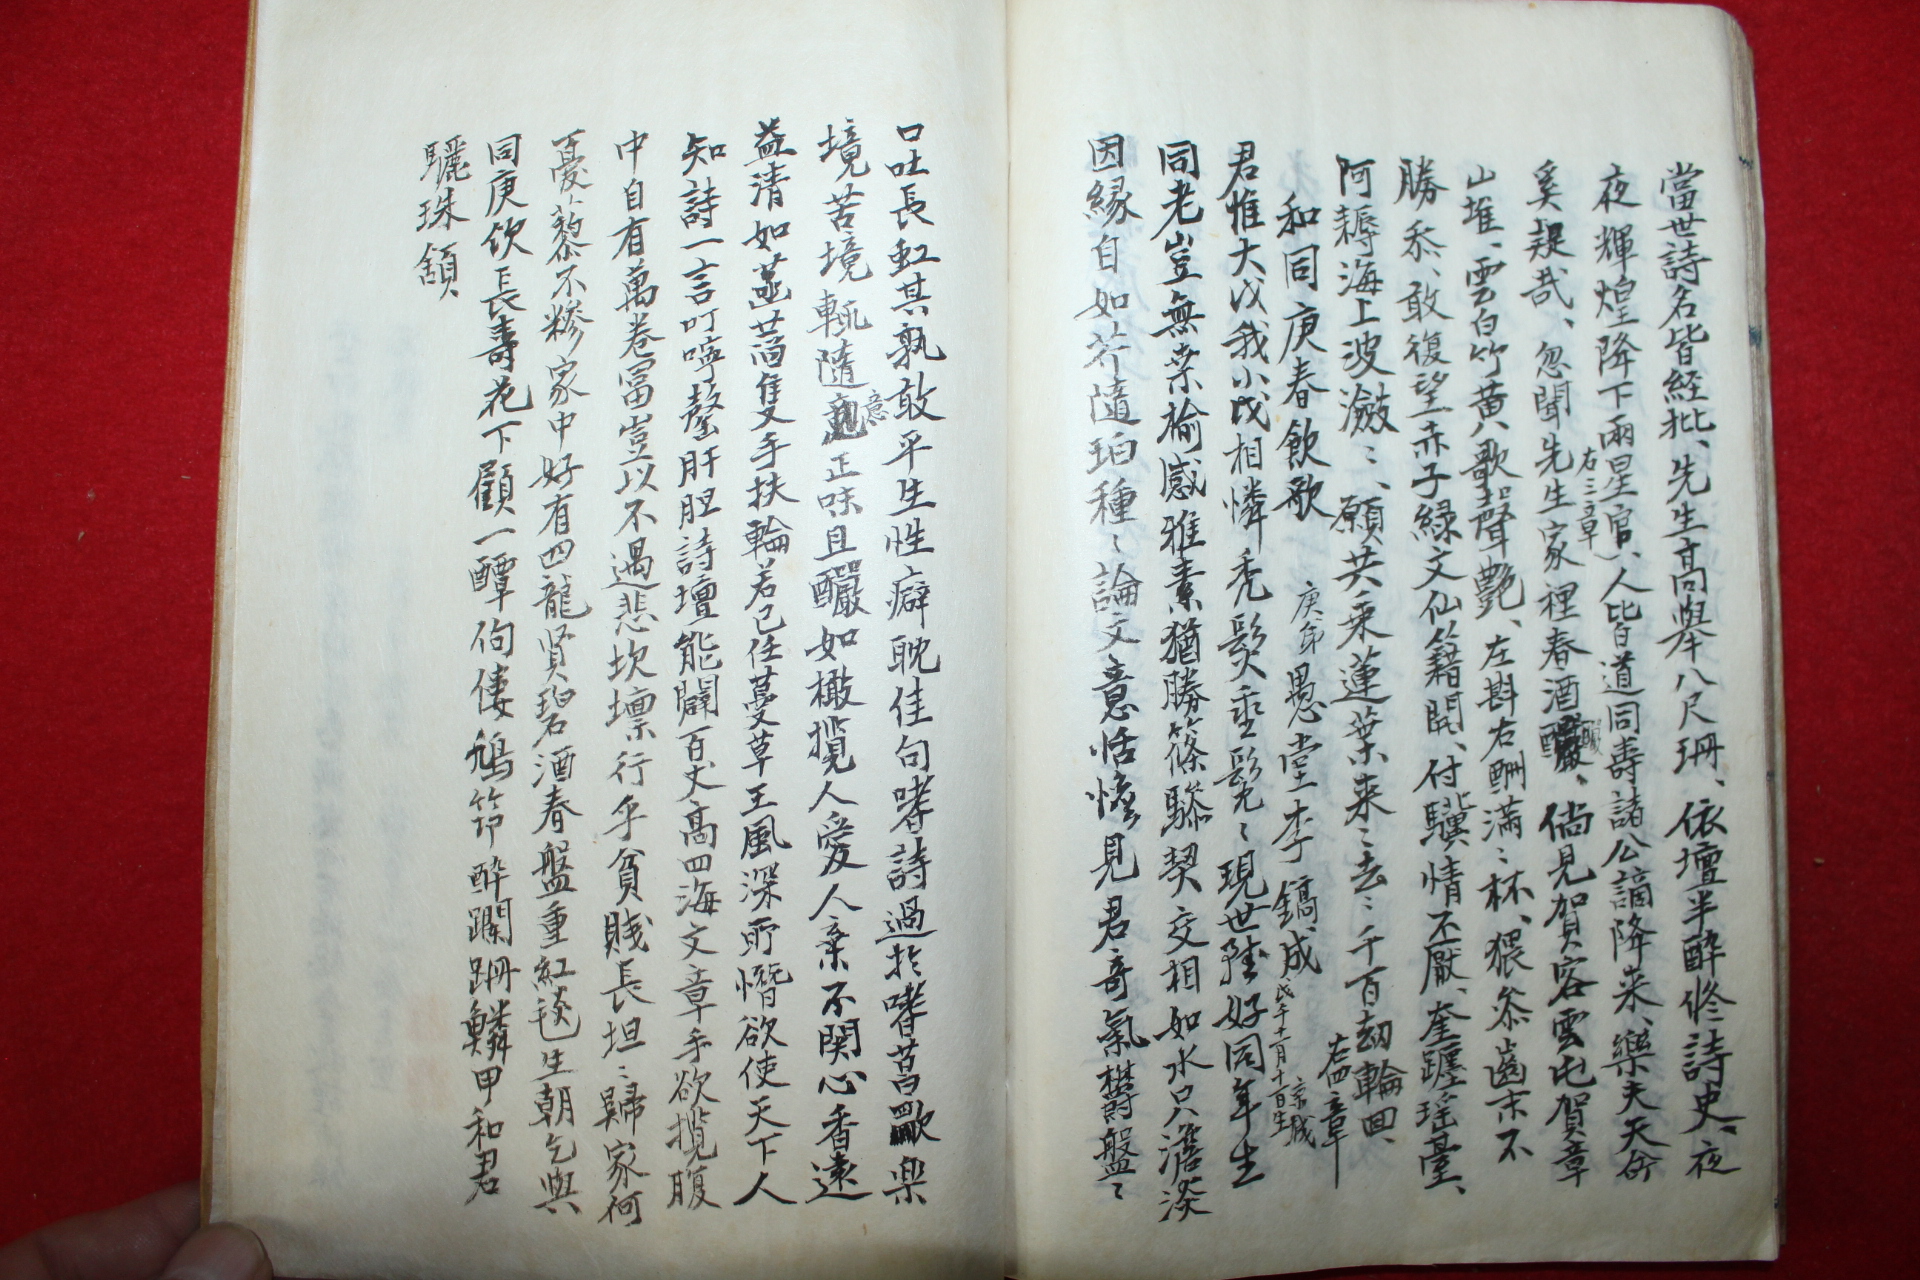 當世詩名皆經批、先生高擧八尺珊、依壇半醉修詩史、夜
夜輝煌降下兩星官、右三章人皆道同壽諸公謫降來、樂夫天命
奚疑哉、忽聞先生家裡春酒釅、倘見賀客雲屯賀章
山堆、雲白竹黃八歌聲艶、左斟右酬滿〻杯、猥忝齒末不
勝忝、敢復望赤子綠文仙籍開、付驥情不厭、奎躔瑤臺、
阿耨海上波瀲〻、願共乘蓮葉來〻去〻千百劫輪回、右四章
和同庚春飮歌 庚弟 愚堂李鎬成 戊午十二月十一日生 京城
君惟大戊我小戊相憐禿髮垂髧〻現世雖好同年生
同老豈無桑楡感雅素猶勝篠驂契交相如水只澹淡
因緣自如芥隨珀種〻論文意恬憺見君奇氣欝盤〻
口吐長虹其孰敢平生性癖耽佳句嗜詩過於嗜昔歜樂
境苦境輒隨意正味且釅如橄攬人愛人棄不関心香遠
益清如菡萏隻手扶輪若已任蔓草王風深所憯欲使天下人
知詩一言叮嚀罄肝胆詩壇能闢百丈高四海文章手欲攬腹
中自有萬卷富豈以不遇悲坎壈行乎貧賎長坦〻歸家何
憂藜不糝家中好有四龍贤碧酒春盤重紅毯生朝乞與
同庚飮長壽花下顧一醰佝僂鳩笻醉躝跚鱗甲和君
驪珠頷、